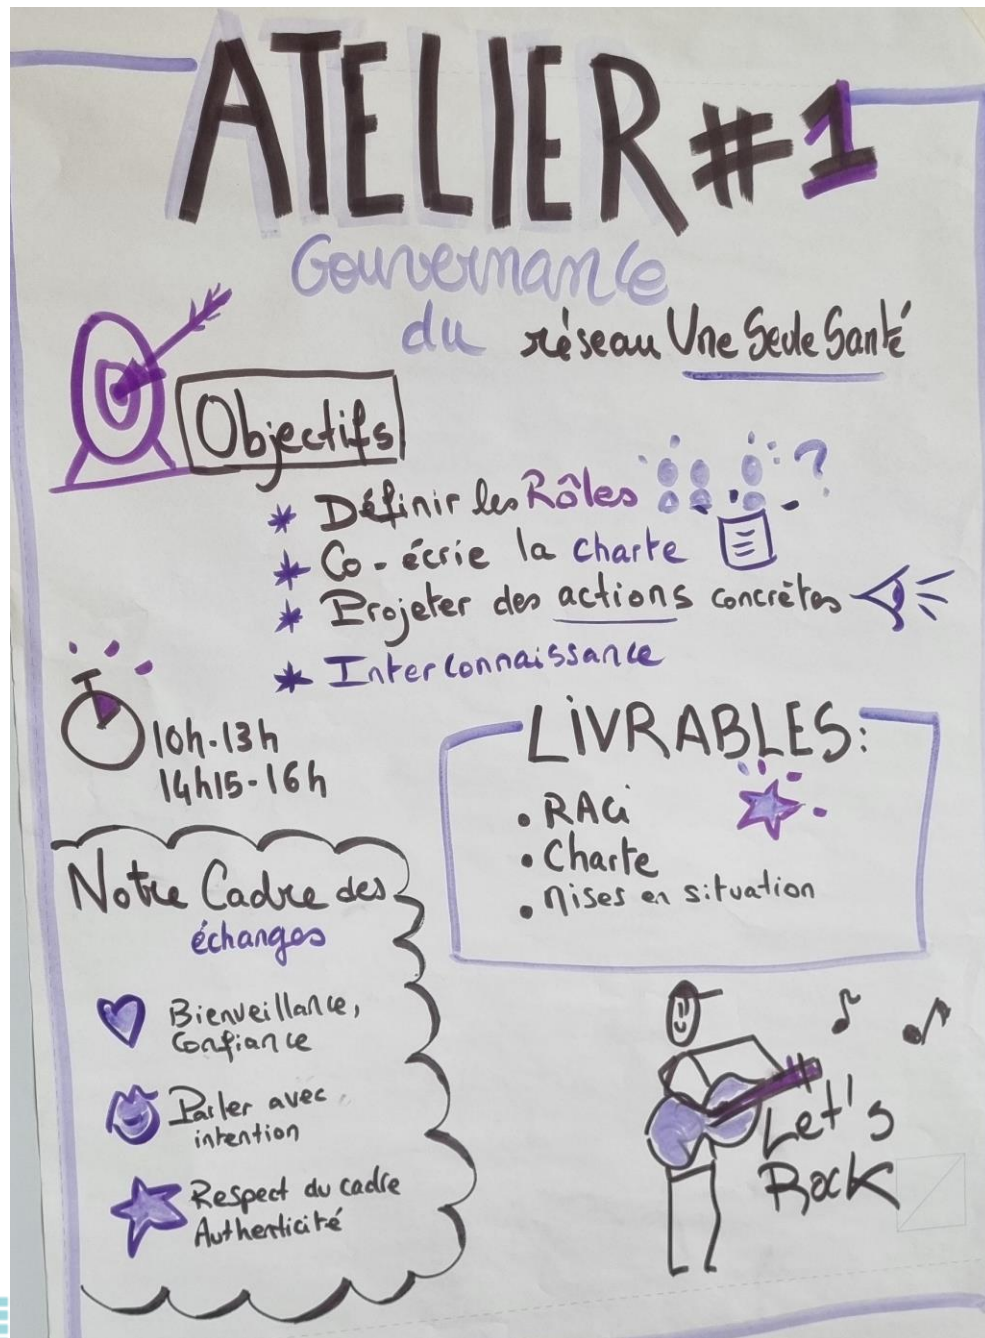 ATELIER #1
Gouvernance
du réseau Une Seule Santé
Objectifs
* Définir les Rôles ?
* Co-écrie la charte
* Projeter des actions concrètes
* Interconnaissance
10h-13h
14h15-16h
LIVRABLES:
• RACi
• Charte
• Mises en situation
Notre Cadre des
échanges
Bienveillance,
Confiance
Parler avec
intention
Respect du cadre
Authenticité
Let's
Rock